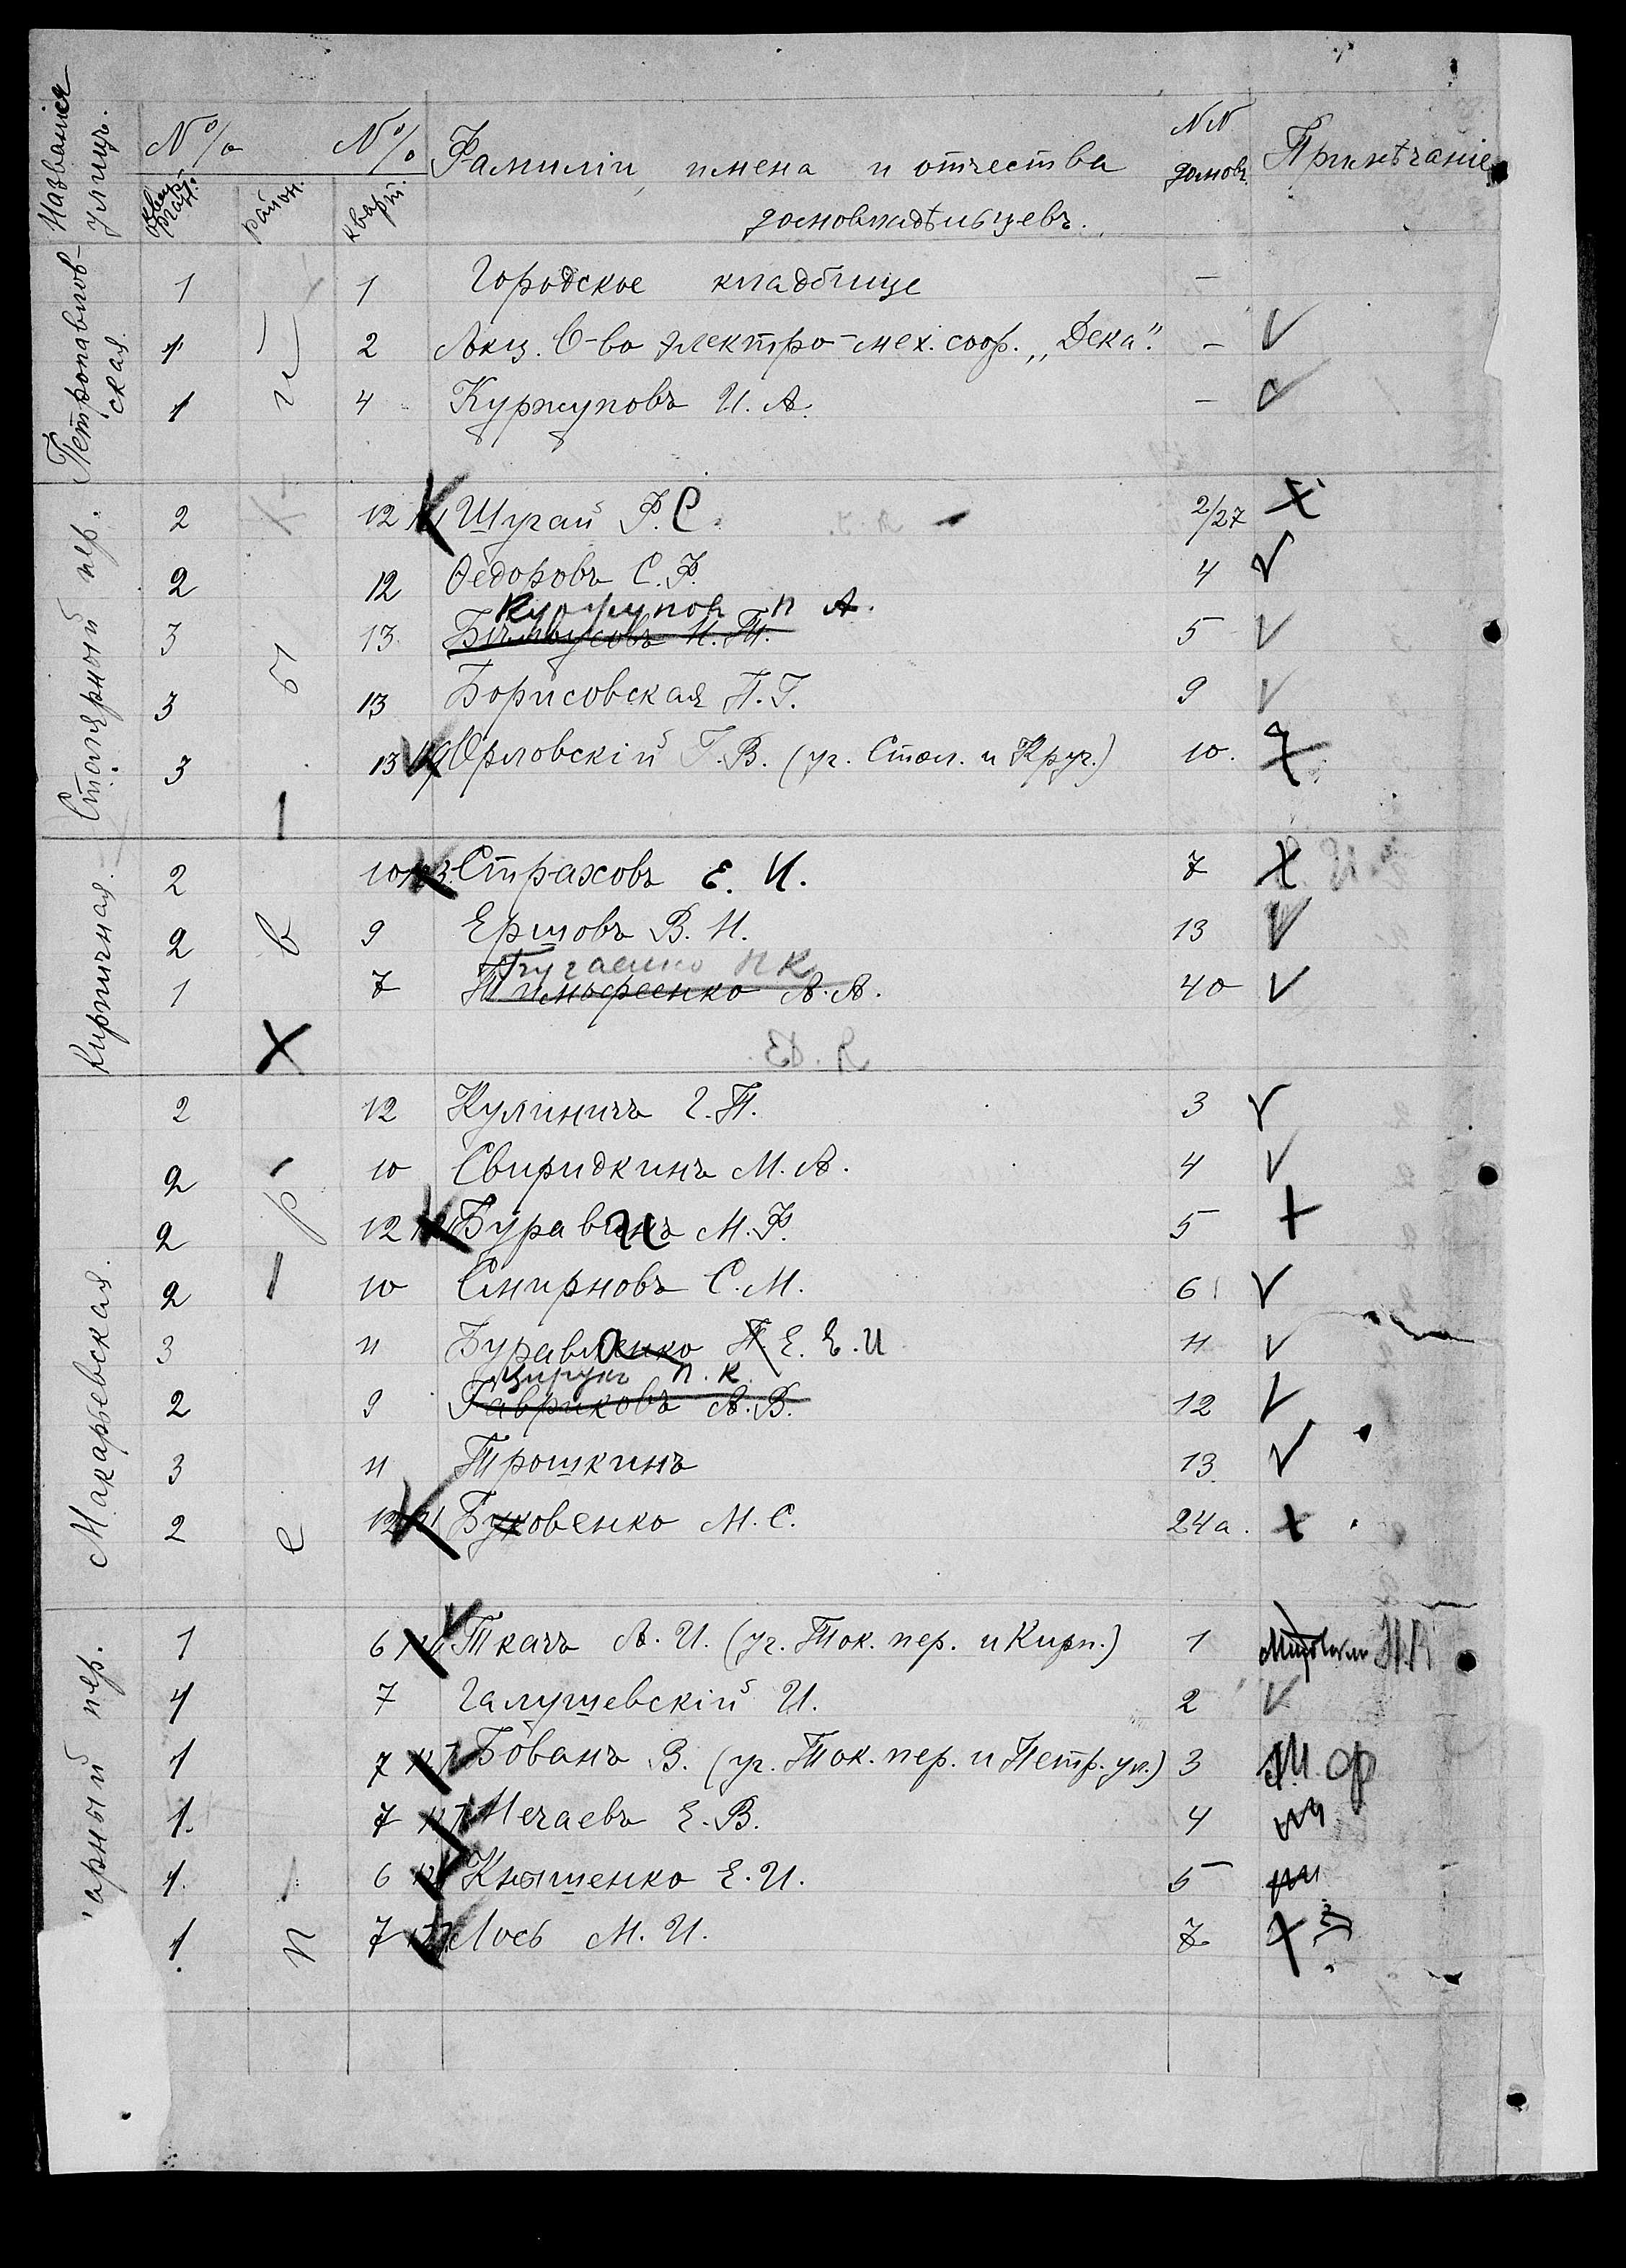 Названія улицъ. № % № % Фамиліи, имена и отчества домовладѣльцевъ. NN домовъ. Примѣчаніе
район. кварт.
Петропавловская
1 1 Городское кладбище –
1 2 Акц. О-во электро-мех. соор. „Дека". – V
1 4 Куржуповъ И. А. – V
Столярный пер.
2 12 Шугай Ф. С. 2/27 X
2 12 Ѳедоровъ С. Ф. 4 V
П А.
3 13 5 V
3 13 Борисовская П. Г. 9 V
3 13 Орловскій Г. В. (уг. Стол. и Круг.) 10.
Кирпичная
2 10 Страховъ Е. И. 7 X
2 в 9 Ершовъ В. И. 13 V
П К
1 7 А. А. 40 V
X
Макарьевская.
2 12 Кулиничъ Г. П. 3 V
2 10 Свиридкинъ М. А. 4 V
2 р 12 Буравинъ М. Ф. 5 X
2 10 Смирновъ С. М. 6 V
3 11 Е. И 11 V
П. К.
2 9 Гавриковъ А. В. 12 V
3 11 Трошкинъ 13. V
2 е 12 Буковенко М. С. 24а. X
арный пер.
1 6 Ткачъ А. И. (уг. Ток. пер. и Кирп.) 1
1 7 Галушевскій И. 2 V
1 7 Бованъ В. (уг. Ток. пер. и Петр. ул.) 3
1. 7 Нечаевъ Е. В. 4
1. 6 Княшенко Е. И. 5
1. п 7 Лось М. И. 7 X